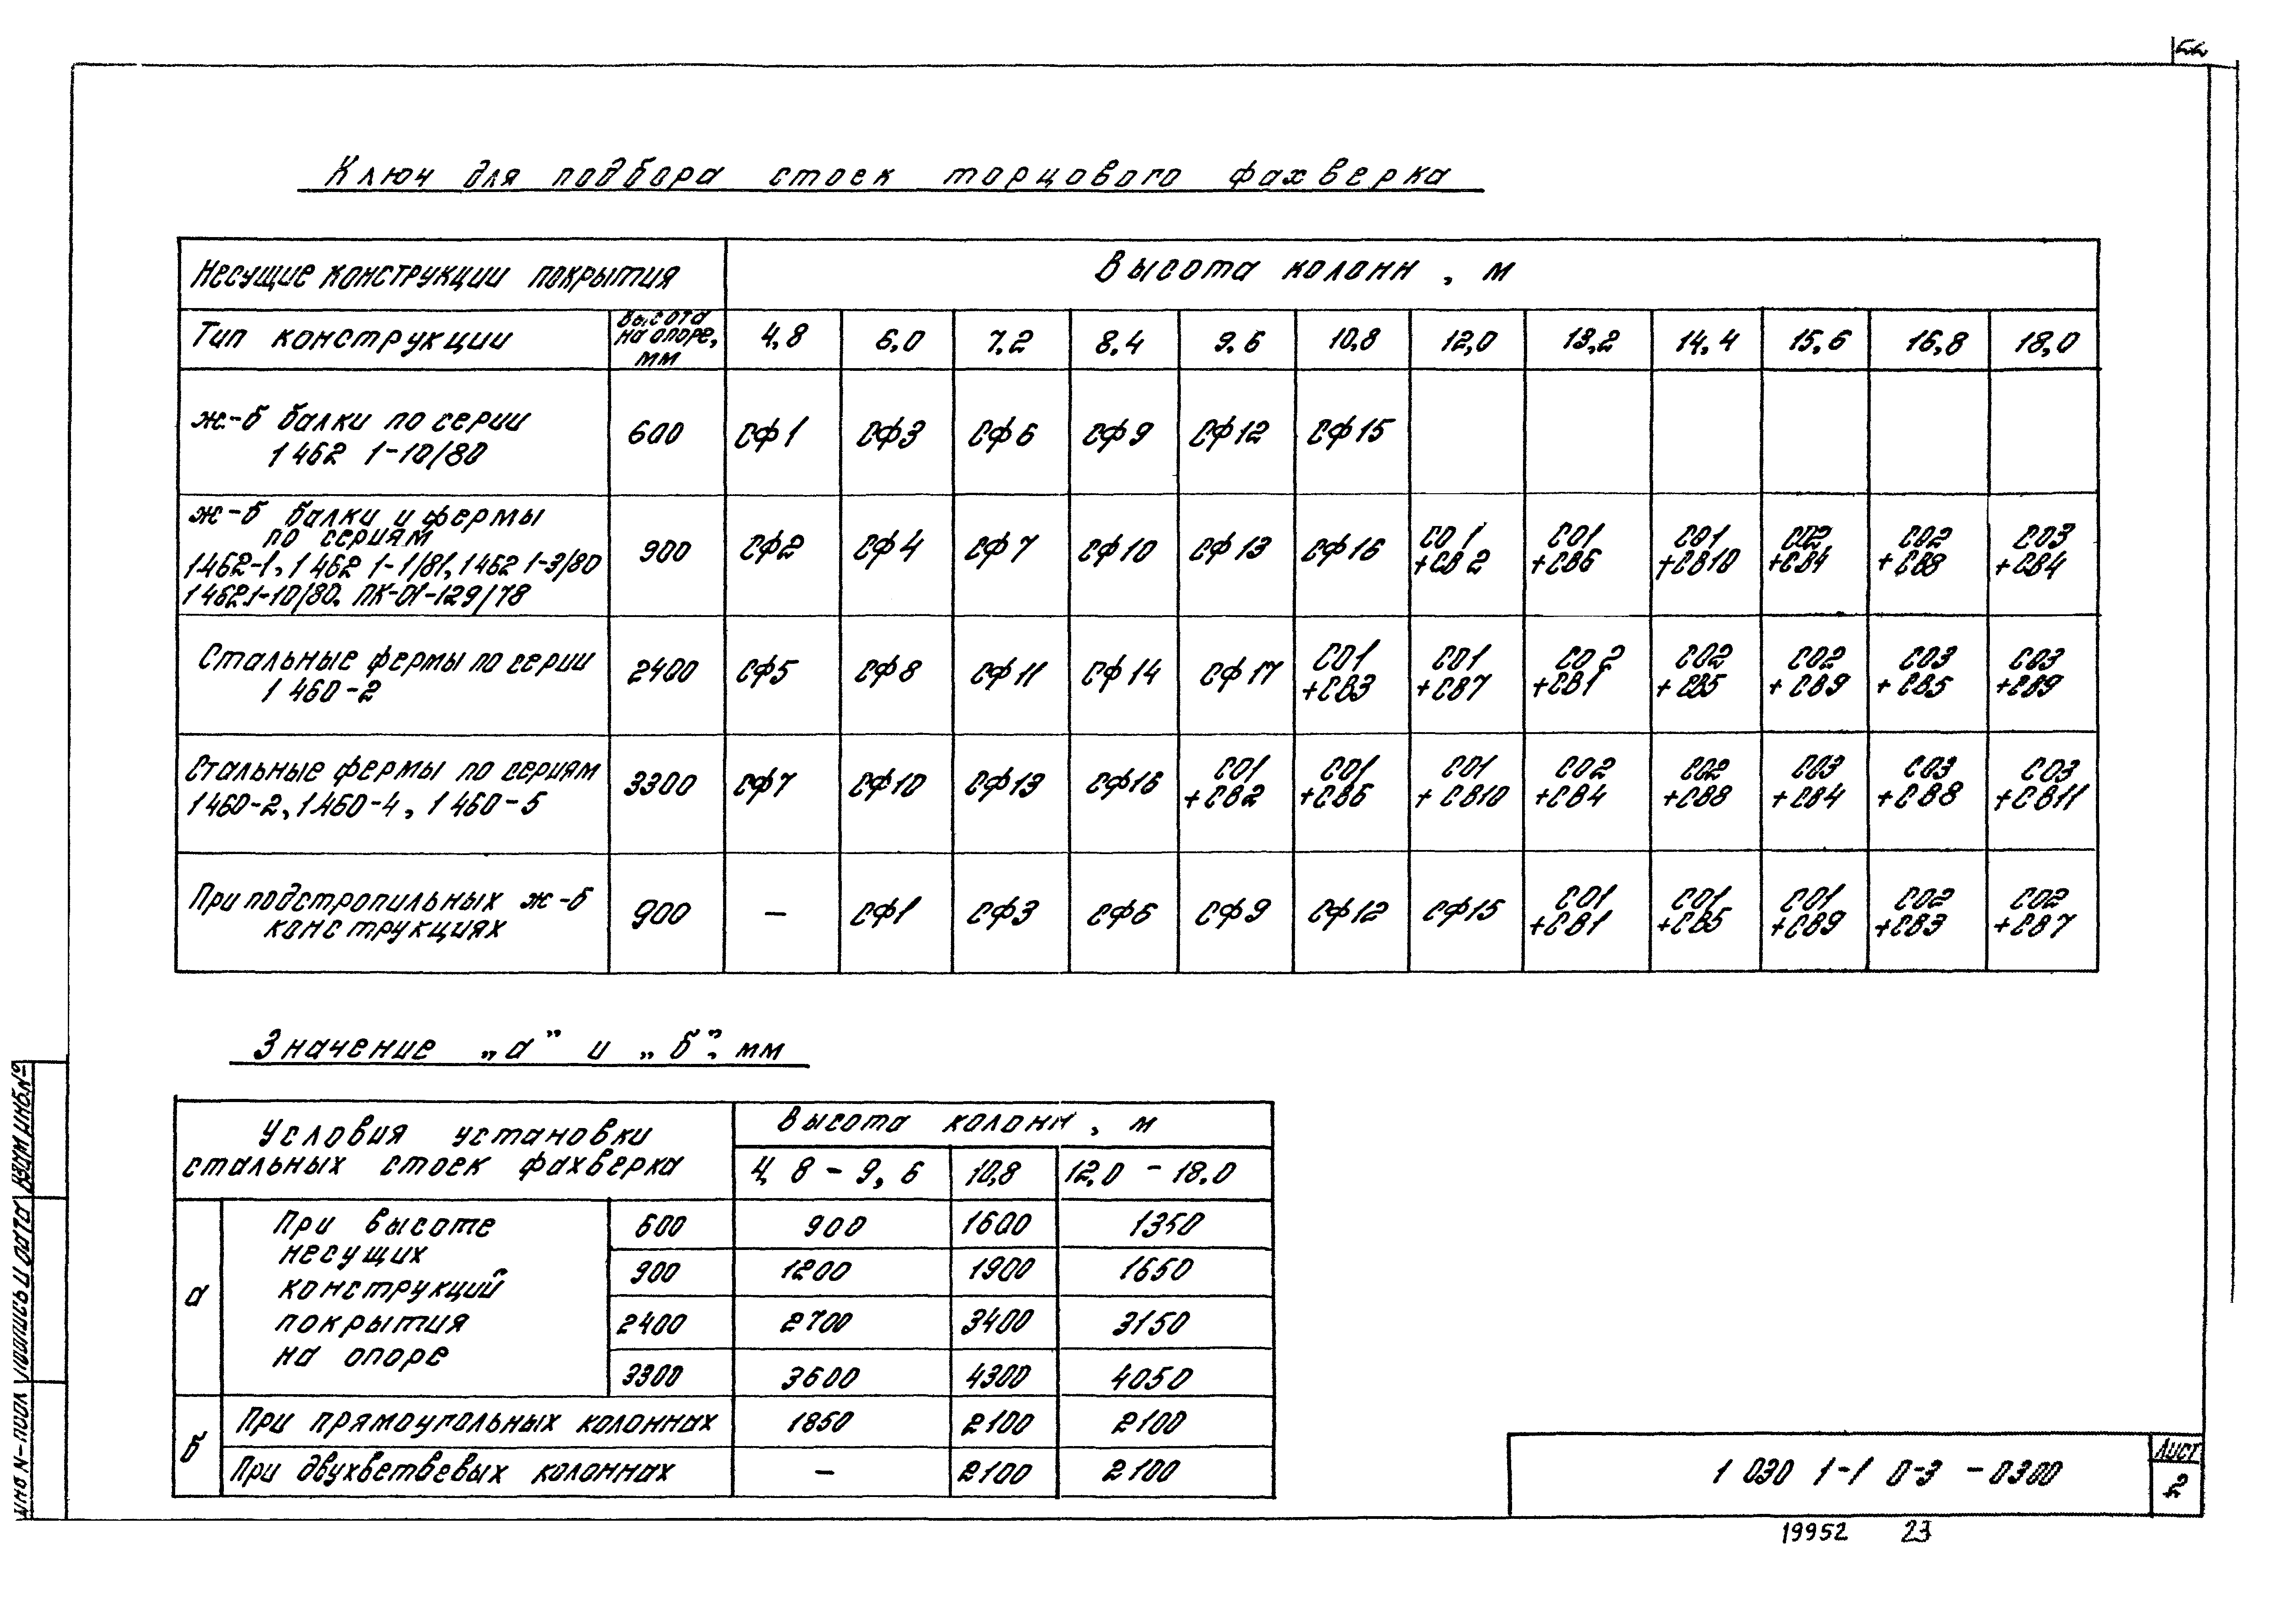 22
Ключ для подбора стоек торцового фахверка
Несущие конструкции покрытия
Высота колонн, м
Тип конструкции
Высота на опоре, мм
4,8 6,0 7,2 8,4 9,6 10,8 12,0 13,2 14,4 15,6 16,8 18,0
ж-б балки по серии
1 462 1-10/80
600 СФ1 СФ3 СФ6 СФ9 СФ12 СФ15
ж-б балки и фермы
по сериям
1462-1, 1 462 1-1/81, 1 462 1-3/80
1 462.1-10/80. ПК-01-129/78
900 СФ2 СФ4 СФ7 СФ10 СФ13 СФ16 СО1 +СВ2 СО1 +СВ6 СО1 +СВ10 СО2 +СВ4 СО2 +СВ8 СО3 +СВ4
Стальные фермы по серии
1 460-2
2400 СФ5 СФ8 СФ11 СФ14 СФ17 СО1 +СВ3 СО1 +СВ7 СО2 +СВ1 СО2 +СВ5 СО2 +СВ9 СО3 +СВ5 СО3 +СВ9
Стальные фермы по сериям
1 460-2, 1.460-4, 1 460-5
3300 СФ7 СФ10 СФ13 СФ16 СО1 +СВ2 СО1 +СВ6 СО1 +СВ10 СО2 +СВ4 СО2 +СВ8 СО3 +СВ4 СО3 +СВ8 СО3 +СВ11
При подстропильных ж-б
конструкциях
900 — СФ1 СФ3 СФ6 СФ9 СФ12 СФ15 СО1 +СВ1 СО1 +СВ5 СО1 +СВ9 СО2 +СВ3 СО2 +СВ7
Значение „а” и „б”, мм
Условия установки
стальных стоек фахверка
Высота колонн, м
4,8-9,6 10,8 12,0-18.0
а
При высоте
несущих
конструкций
покрытия
на опоре
600 900 1600 1350
900 1200 1900 1650
2400 2700 3400 3150
3300 3600 4300 4050
б
При прямоугольных колоннах 1850 2100 2100
При двухветвевых колоннах — 2100 2100
1 030 1-1 0-3 -0300
Лист
2
19952 23
Инв N-подл
Подпись и дата
Взам инв.№